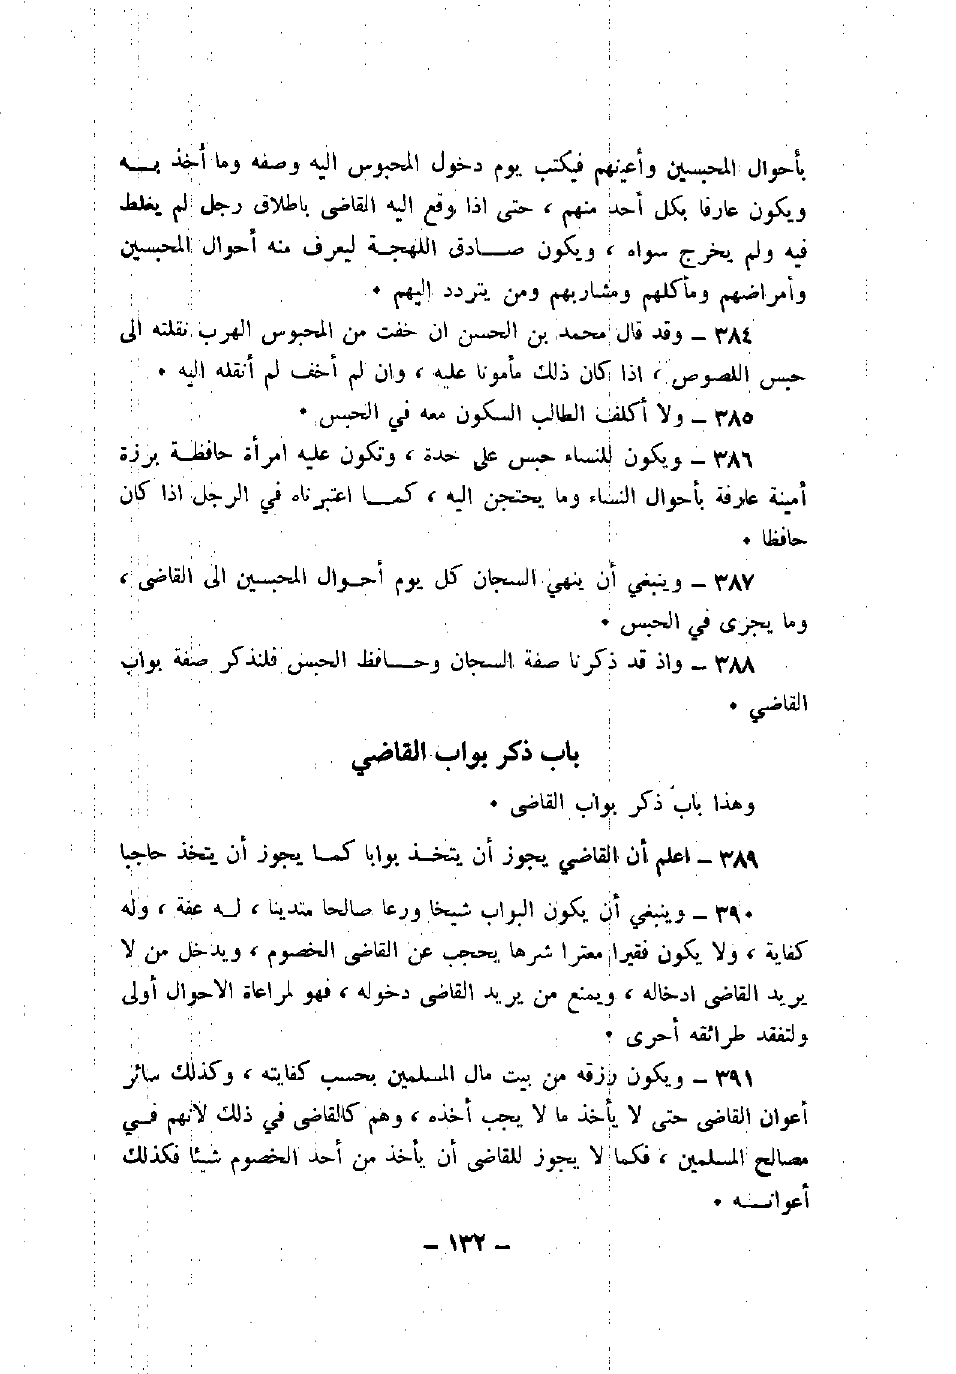 بأحوال المحبسين وأعينهم فيكتب يوم دخول المحبوس اليه وصفه وما أخذ بـــه
ويكون عارفا بكل أحد منهم ، حتى اذا وقع اليه القاضى باطلاق رجل لم يغلط
فيه ولم يخرج سواه ، ويكون صــادق اللهجـة ليعرف منه أحوال المحبسين
وأمراضهم ومآكلهم ومشاربهم ومن يتردد اليهم ٠
٣٨٤ ــ وقد قال محمد بن الحسن ان خفت من المحبوس الهرب نقلته الى
حبس اللصوص ، اذا كان ذلك مأمونا عليه ، وان لم أخف لم أنقله اليه ٠
٣٨٥ ــ ولا أكلف الطالب السكون معه في الحبس ٠
٣٨٦ ــ ويكون للنساء حبس على حدة ، وتكون عليه امرأة حافظـة برزة
أمينة عارفة بأحوال النساء وما يحتجن اليه ، كمــا اعتبرناه في الرجل اذا كان
حافظا ٠
٣٨٧ ــ وينبغي أن ينهي السجان كل يوم أحـوال المحبسين الى القاضى ،
وما يجزى في الحبس ٠
٣٨٨ ــ واذ قد ذكرنا صفة السجان وحــافظ الحبس فلنذكر صفة بواب
القاضي ٠
باب ذكر بواب القاضي
وهذا باب ذكر بواب القاضى ٠
٣٨٩ ــ اعلم أن القاضي يجوز أن يتخـذ بوابا كمـا يجوز أن يتخذ حاجبا
٣٩٠ ــ وينبغي أن يكون البواب شيخا ورعا صالحا متدينا ، لـه عفة ، وله
كفاية ، ولا يكون فقيرا معترا شرها يحجب عن القاضى الخصوم ، ويدخل من لا
يريد القاضى ادخاله ، ويمنع من يريد القاضى دخوله ، فهو لمراعاة الاحوال أولى
ولتفقد طرائقه أحرى ٠
٣٩١ ــ ويكون رزقه من بيت مال المسلمين بحسب كفايته ، وكذلك سائر
أعوان القاضى حتى لا يأخذ ما لا يجب أخذه ، وهم كالقاضى في ذلك لانهم فـي
مصالح المسلمين ، فكما لا يجوز للقاضى أن يأخذ من أحد الخصوم شيئا فكذلك
أعوانـــه ٠
– ١٣٢ –